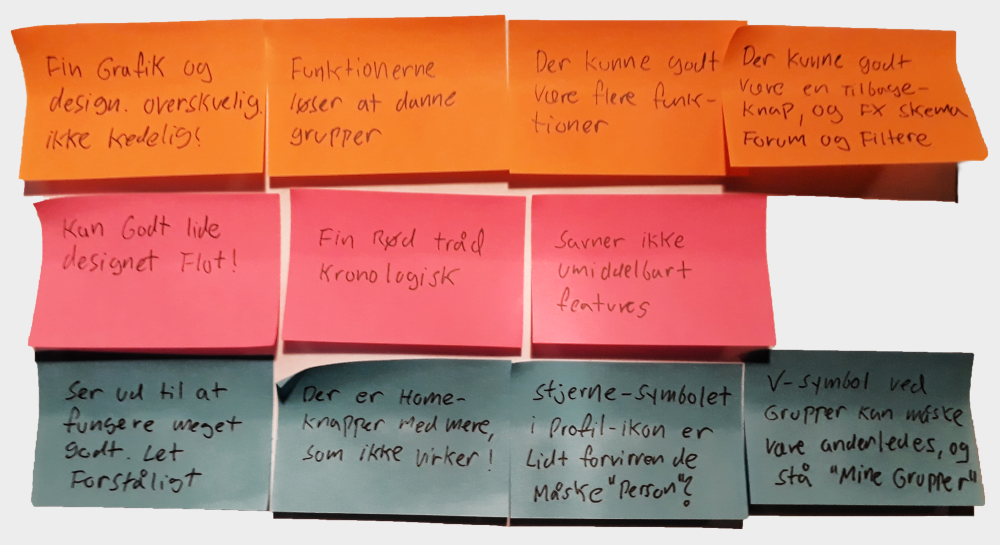 Fin Grafik og
design. overskuelig.
ikke kedelig!
Funktionerne
løser at danne
grupper
Der kunne godt
være flere funk-
tioner
Der kunne godt
være en Tilbage-
knap, og FX skema
Forum og Filtere
Kan Godt lide
designet Flot!
Fin Rød tråd
Kronologisk
Savner ikke
umiddelbart
features
Ser ud til at
fungere meget
godt. Let
Forståligt
Der er Home-
knapper med mere,
som ikke virker!
Stjerne-symbolet
i Profil-ikon er
Lidt forvirrende
Måske "Person"?
V-symbol ved
Grupper kan måske
være anderledes, og
stå "Mine Grupper"